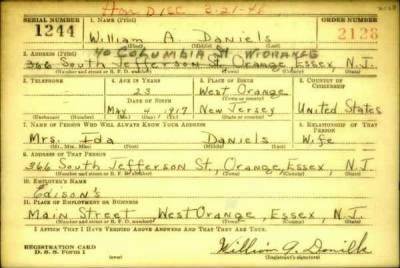 Hon Disc 2-21-46
SERIAL NUMBER 1. NAME (Print) ORDER NUMBER
1244 William A. Daniels 2128
2. ADDRESS (Print) 40 COLUMBIA ST W. ORANGE
366 South Jefferson St. Orange, Essex, N.J.
(Number and street or R. F. D. number) (Town) (County) (State)
3. TELEPHONE 4. AGE IN YEARS 5. PLACE OF BIRTH 6. COUNTRY OF CITIZENSHIP
23 West Orange
DATE OF BIRTH (Town or county)
May 4 1917 New Jersey United States
(Exchange) (Number) (Mo.) (Day) (Yr.) (State or country)
7. NAME OF PERSON WHO WILL ALWAYS KNOW YOUR ADDRESS 8. RELATIONSHIP OF THAT PERSON
Mrs. Ida Daniels Wife
(Mr., Mrs., Miss) (First) (Middle) (Last)
9. ADDRESS OF THAT PERSON
366 South Jefferson St., Orange, Essex, N.J.
(Number and street or R. F. D. number) (Town) (County) (State)
10. EMPLOYER'S NAME
Edison's
11. PLACE OF EMPLOYMENT OR BUSINESS
Main Street West Orange, Essex, N.J.
(Number and street or R. F. D. number) (Town) (County) (State)
I AFFIRM THAT I HAVE VERIFIED ABOVE ANSWERS AND THAT THEY ARE TRUE.
REGISTRATION CARD
D. S. S. Form 1
William A. Daniels
(Registrant's signature)